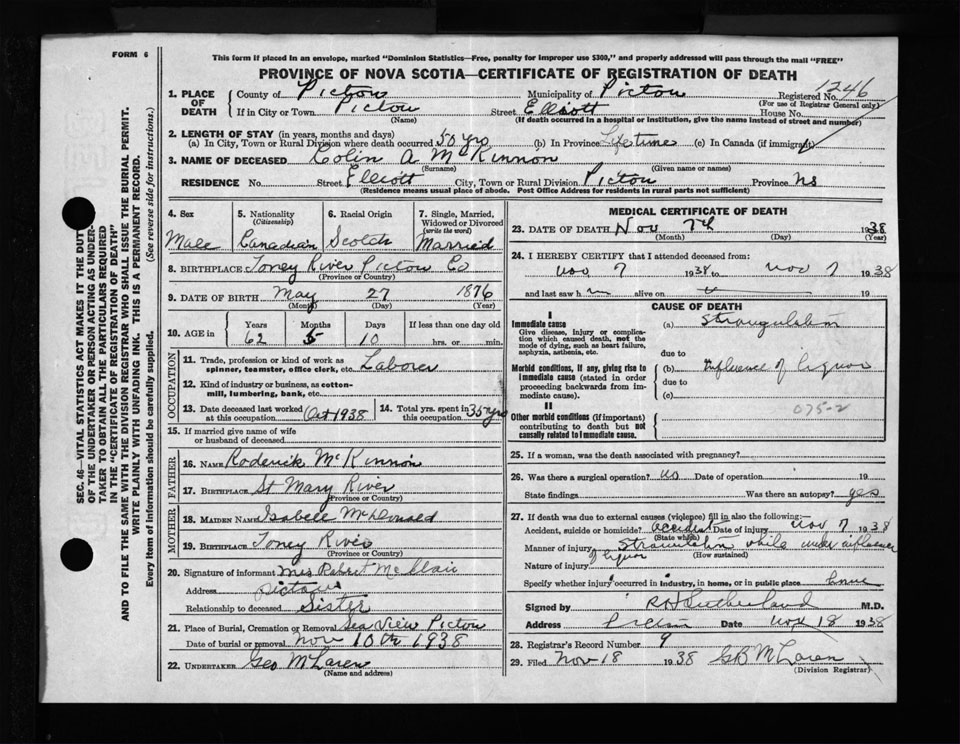 FORM 6
This form if placed in an envelope, marked "Dominion Statistics—Free, penalty for improper use $300," and properly addressed will pass through the mail "FREE"
PROVINCE OF NOVA SCOTIA—CERTIFICATE OF REGISTRATION OF DEATH
1. PLACE OF DEATH
County of Pictou Municipality of Pictou Registered No. 1246
(For use of Registrar General only)
If in City or Town Pictou Street Elliott House No.
(Name) (If death occurred in a hospital or institution, give the name instead of street and number)
2. LENGTH OF STAY (in years, months and days)
(a) In City, Town or Rural Division where death occurred 50 yrs (b) In Province Lifetime (c) In Canada (if immigrant)
3. NAME OF DECEASED Colin A McKinnon
(Surname) (Given name or names)
RESIDENCE No. Street Elliott City, Town or Rural Division Pictou Province NS
(Residence means usual place of abode. Post Office Address for residents in rural parts not sufficient)
4. Sex Male
5. Nationality (Citizenship) Canadian
6. Racial Origin Scotch
7. Single, Married, Widowed or Divorced (write the word) Married
8. BIRTHPLACE Toney River Pictou Co
(Province or Country)
9. DATE OF BIRTH May 27 1876
(Month) (Day) (Year)
10. AGE in Years Months Days If less than one day old
62 5 10 hrs. or min.
OCCUPATION
11. Trade, profession or kind of work as spinner, teamster, office clerk, etc. Laborer
12. Kind of industry or business, as cotton-mill, lumbering, bank, etc.
13. Date deceased last worked at this occupation Oct 1938
14. Total yrs. spent in this occupation 35 yrs
15. If married give name of wife or husband of deceased
FATHER
16. NAME Roderick McKinnon
17. BIRTHPLACE St Mary River
(Province or Country)
MOTHER
18. MAIDEN NAME Isabell McDonald
19. BIRTHPLACE Toney River
(Province or Country)
20. Signature of informant Mrs Robert
Address Pictou
Relationship to deceased Sister
21. Place of Burial, Cremation or Removal Sea View Pictou
Date of burial or removal Nov 10th 1938
22. UNDERTAKER Geo McLaren
(Name and address)
MEDICAL CERTIFICATE OF DEATH
23. DATE OF DEATH Nov 7th 1938
(Month) (Day) (Year)
24. I HEREBY CERTIFY that I attended deceased from:
Nov 7 1938 to Nov 7 1938
and last saw h m alive on 19
CAUSE OF DEATH
I
Immediate cause (a) Strangulation
Give disease, injury or complication which caused death, not the mode of dying, such as heart failure, asphyxia, asthenia, etc.
due to
Morbid conditions, if any, giving rise to immediate cause (stated in order proceeding backwards from immediate cause).
(b) Influence of liquor
due to
(c)
II
075-2
Other morbid conditions (if important) contributing to death but not causally related to immediate cause.
25. If a woman, was the death associated with pregnancy?
26. Was there a surgical operation? No Date of operation 19
State findings Was there an autopsy? yes
27. If death was due to external causes (violence) fill in also the following:—
Accident, suicide or homicide? accident Date of injury Nov 7 1938
(State which)
Manner of injury Strangulation while under influence of liquor
(How sustained)
Nature of injury
Specify whether injury occurred in industry, in home, or in public place
Signed by Sutherland M.D.
Address Pictou Date Nov 18 1938
28. Registrar's Record Number 9
29. Filed Nov 18 1938 GB McLaren
(Division Registrar)
SEC. 46—VITAL STATISTICS ACT MAKES IT THE DUTY OF THE UNDERTAKER OR PERSON ACTING AS UNDERTAKER TO OBTAIN ALL THE PARTICULARS REQUIRED IN THE "CERTIFICATE OF REGISTRATION OF DEATH"
AND TO FILE THE SAME WITH THE DIVISION REGISTRAR WHO SHALL ISSUE THE BURIAL PERMIT.
WRITE PLAINLY WITH UNFADING INK. THIS IS A PERMANENT RECORD.
Every item of information should be carefully supplied. (See reverse side for instructions.)